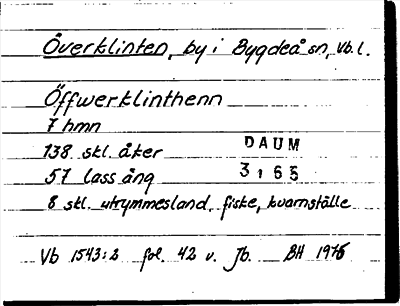 Överklinten, by i Bygdeå sn, Vb. l.
Öffwerklinthenn
7 hmn
138 skl. åker
57 lass äng
DAUM
3165
8 skl. utrymmesland, fiske, kvarnställe
Vb 1543:2 fol. 42 v. Jb. BH 1976